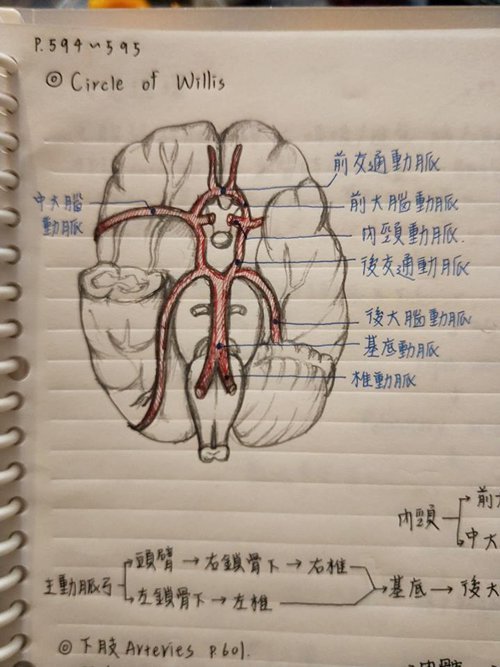 P.594~595
◎ Circle of Willis
前交通動脈
中大腦
動脈
前大腦動脈
內頸動脈.
後交通動脈
後大腦動脈
基底動脈
椎動脈
內頸
前大
中大
主動脈弓
頭臂 → 右鎖骨下 → 右椎
左鎖骨下 → 左椎
基底 → 後大
◎ 下肢 Arteries P.601.